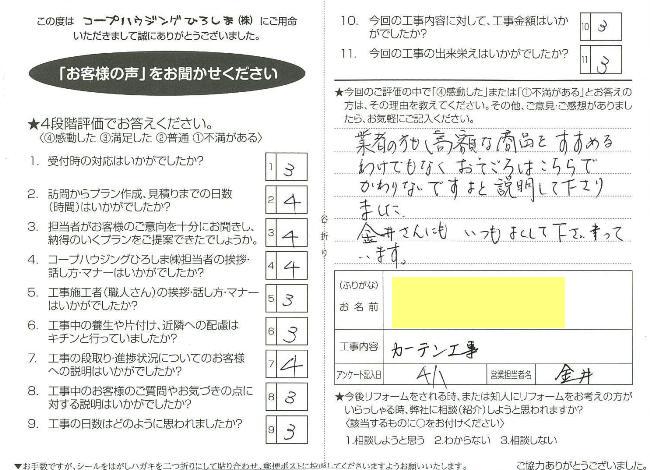 この度は コープハウジングひろしま(株) にご用命
いただきまして誠にありがとうございました。
「お客様の声」をお聞かせください
★4段階評価でお答えください。
〈④感動した ③満足した ②普通 ①不満がある〉
1. 受付時の対応はいかがでしたか?
1 3
2. 訪問からプラン作成、見積りまでの日数
(時間)はいかがでしたか?
2 4
3. 担当者がお客様のご意向を十分にお聞きし、
納得のいくプランをご提案できたでしょうか。
3 4
4. コープハウジングひろしま㈱担当者の挨拶・
話し方・マナーはいかがでしたか?
4 4
5. 工事施工者(職人さん)の挨拶・話し方・マナー
はいかがでしたか?
5 3
6. 工事中の養生や片付け、近隣への配慮は
キチンと行っていましたか?
6 3
7. 工事の段取り・進捗状況についてのお客様
への説明はいかがでしたか?
7 4
8. 工事中のお客様のご質問やお気づきの点に
対する説明はいかがでしたか?
8 3
9. 工事の日数はどのように思われましたか?
9 3
谷折り
10. 今回の工事内容に対して、工事金額はいか
がでしたか?
10 3
11. 今回の工事の出来栄えはいかがでしたか?
11 3
★今回のご評価の中で「④感動した」または「①不満がある」とお答え
の方は、その理由を教えてください。その他、ご意見・ご感想がありまし
たら、お気軽にご記入ください。
業者の方が高額な商品をすすめる
わけでもなく おてごろはこちらで
かわりないですよと説明して下さり
ました
金井さんにも いつもよくして下さって
います。
(ふりがな)
お名前
工事内容 カーテン工事
アンケート記入日 4/1 営業担当者名 金井
★今後リフォームをされる時、または知人にリフォームをお考えの方が
いらっしゃる時、弊社に相談(紹介)しようと思われますか?
〈該当するものに○をお付けください〉
1.相談しようと思う 2.わからない 3.相談しない
▼お手数ですが、シールをはがしハガキを二つ折りにして貼り合わせ、郵便ポストに投函してくださいますようお願いいたします。
ご協力ありがとうございました。